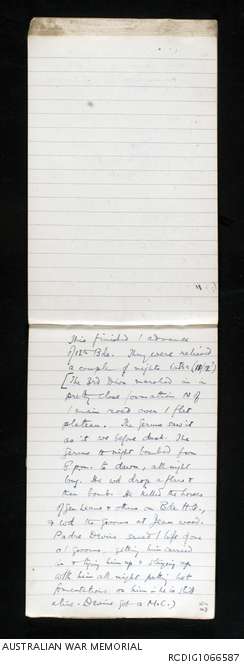 This finished / advance
of 12th Bde. They were relieved
a couple of nights later
[The 3rd Divn marched in in
pretty close formation N of
/ main road over / flat
plateau. The Germs saw it
as it was before dusk. The
Germs to night bombed from
8 p.m. to dawn, all night
long. He wd drop a flare &
then bombs. He killed the horses
of Gen and others on Bde H.Q.,
& wd the grooms at Jean wood.
Padre Devine saved / life of one
of / grooms, getting him carried
in & tying him up & staying up
with him all night putting hot
fomentations on him – he is still
alive. Devine got a M.C.)
AUSTRALIAN WAR MEMORIAL
RCDIG1066587